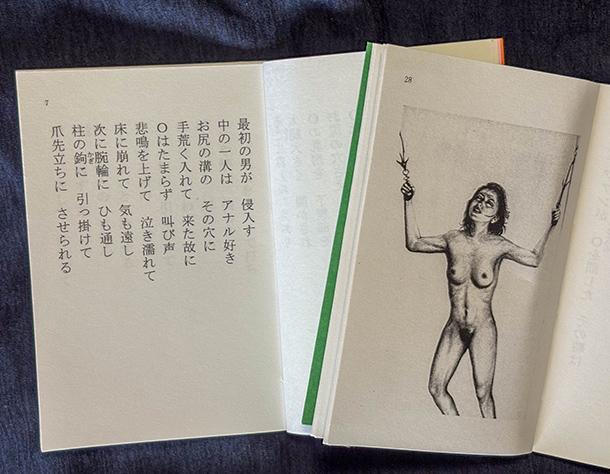 7
最初の男が 侵入す
中の一人は アナル好き
お尻の溝の その穴に
手荒く入れて 来た故に
Oはたまらず 叫び声
悲鳴を上げて 泣き濡れて
床に崩れて 気も遠し
次に腕輪に ひも通し
柱の鉤に 引っ掛けて
かぎ
爪先立ちに させられる
28